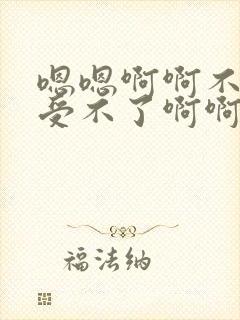 嗯嗯啊啊不
受不了啊啊
福法纳